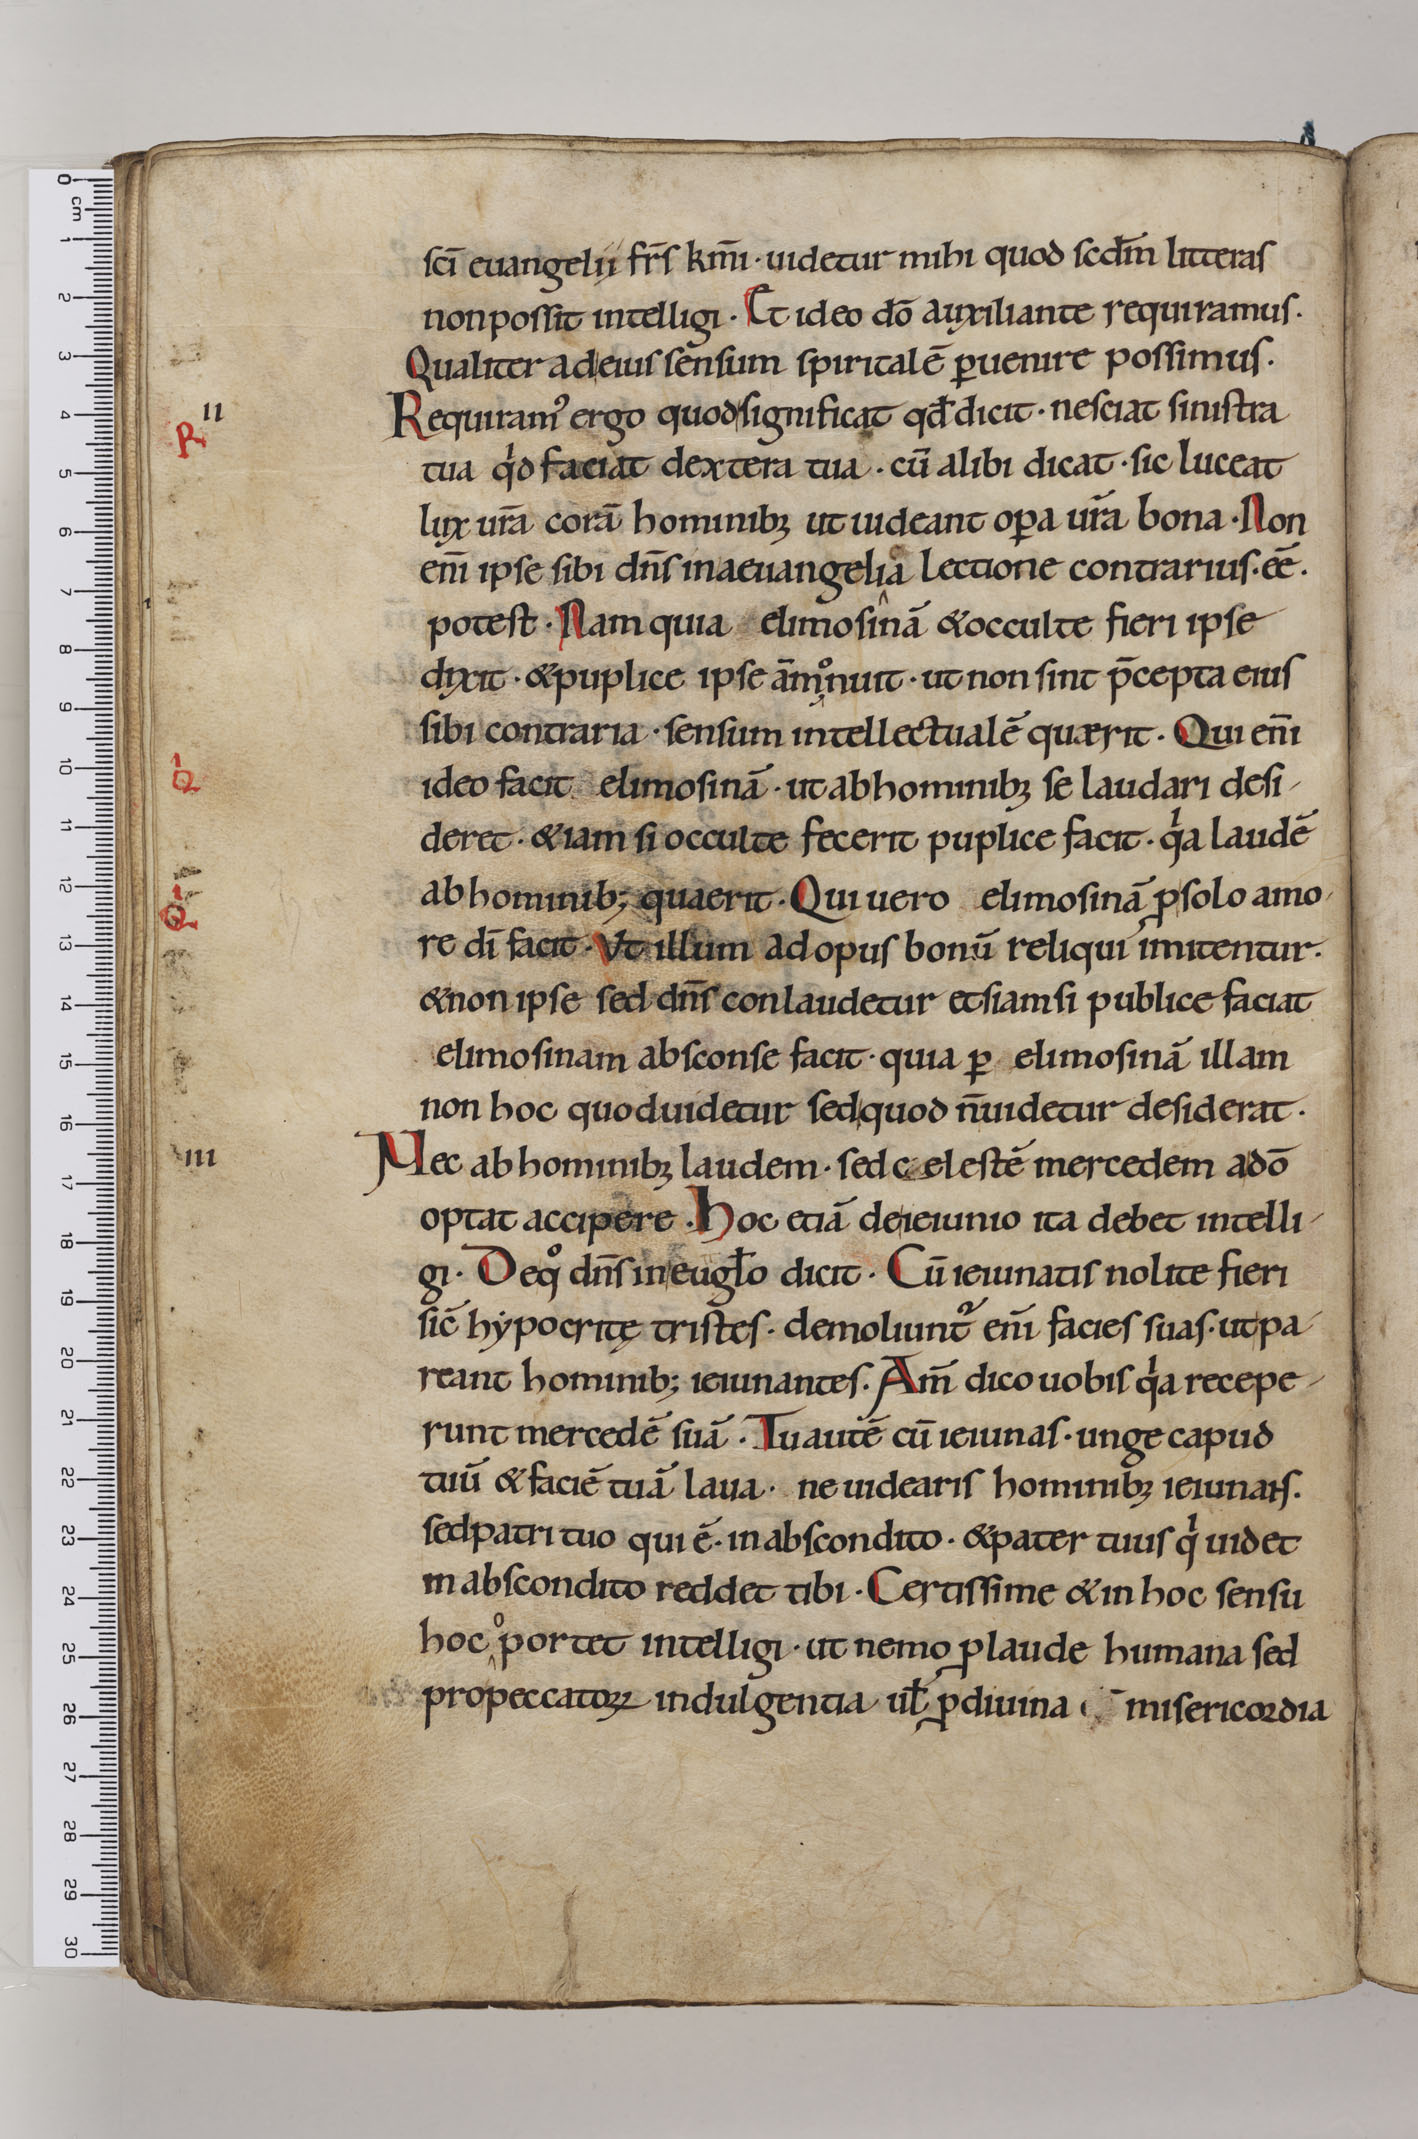 sc̄i euangelii fr̄s km̄i · uidetur mihi quod scd̄m litteras
non possit intelligi · Et ideo do̅ auxiliante requiramus ·
Qualiter ad eius sensum spiritale̅ p̱uenire possimus ·
II
R
Requiram᾽ ergo quod significat qd̄ dicit · nesciat sinistra
tua qⁱd faciat dextera tua · cu̅ alibi dicat · sic luceat
lux ur̄a cora̅ hominibꝫ ut uideant oꝑa ur̄a bona · Non
eni̅ ipse sibi dn̄s in aeuangelica lectione contrarius · ee̅ ·
potest · Nam quia elimosina̅ & occulte fieri ipse
dixit · & puplice ipse a̅monuit · ut non sint p̄cepta eius
sibi contraria · sensum intellectuale̅ quærit · Qui eni̅
Qⁱ
ideo facit elimosina̅ · ut ab hominibꝫ se laudari desi-
deret · &iam si occulte fecerit puplice facit · qⁱa laude̅
Qⁱ
ab hominib; quaerit · Qui uero elimosina̅ ꝓ solo amo-
re di̅ facit · Vt illum ad opus bonu̅ reliqui imitentur ·
& non ipse sed dn̄s conlaudetur etsiamsi publice faciat
elimosinam absconse facit · quia ꝑ elimosina̅ illam
non hoc quod uidetur sed quod n̄ uidetur desiderat ·
III
Nec ab hominibꝫ laudem · sed celeste̅ mercedem a do̅
optat accipere · Hoc etia̅ de ieiunio ita debet intelli-
gi · De qͦ dn̄s in euglo̅ dicit · Cu̅ ieiunatis nolite fieri
sic̅ hypocritę tristes · demoliunt᾽ eni̅ facies suas · ut pa-
reant hominib; ieiunantes · Am̅ dico uobis qⁱa recepe-
runt mercede̅ sua̅ · Tu aute̅ cu̅ ieiunas · unge capud
tuu̅ & facie̅ tua̅ laua · ne uidearis hominibꝫ ieiunans ·
sed patri tuo qui e̅ · in abscondito · & pater tuus qⁱ uidet
in abscondito reddet tibi · Certissime & in hoc sensu
hoc oportet intelligi · ut nemo ꝓ laude humana sed
pro peccatoꝝ indulgentia ul̅ ꝓ diuina misericordia